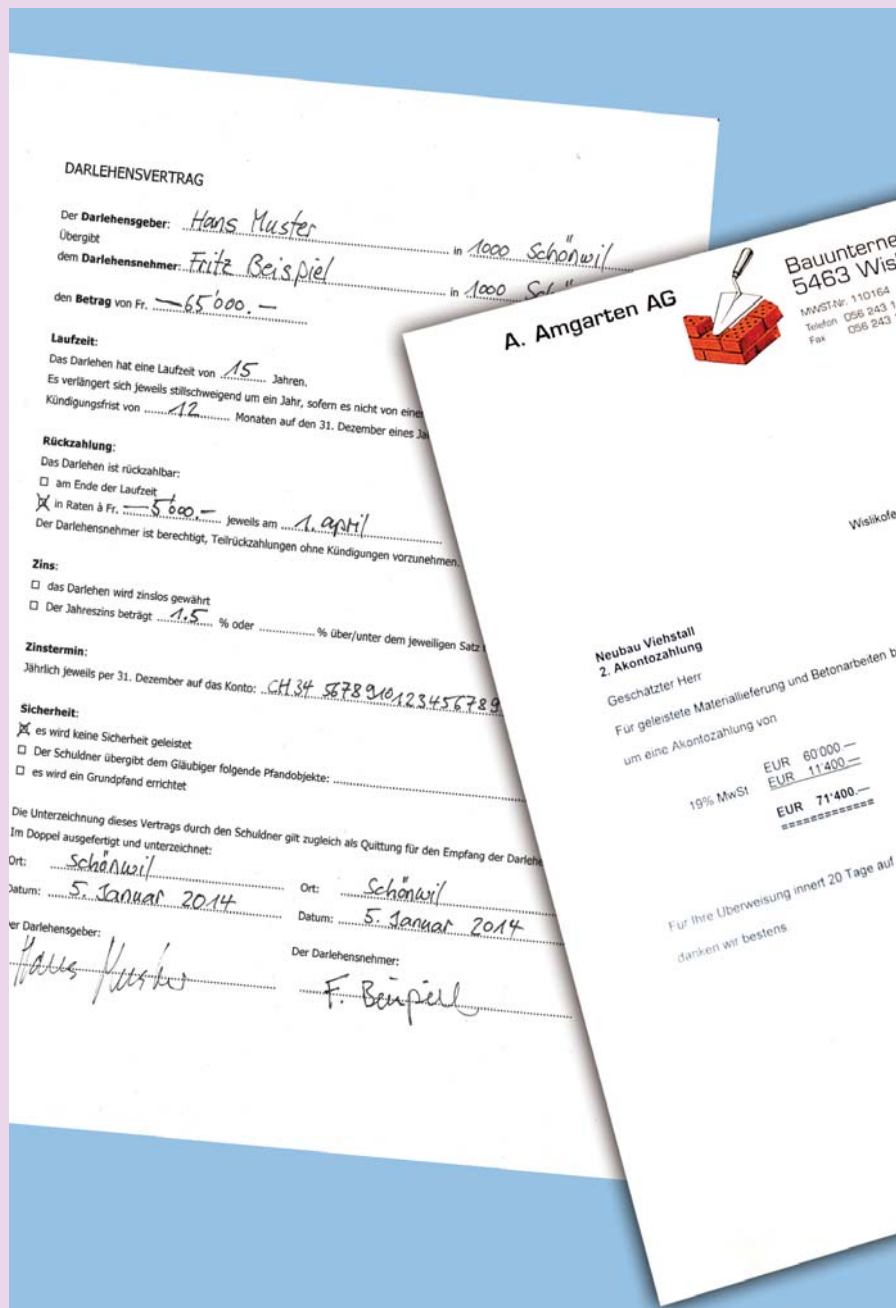 DARLEHENSVERTRAG
Der Darlehensgeber: Hans Muster in 1000 Schönwil
Übergibt
dem Darlehensnehmer: Fritz Beispiel in 1000
den Betrag von Fr. —65'000.—
Laufzeit:
Das Darlehen hat eine Laufzeit von 15 Jahren.
Es verlängert sich jeweils stillschweigend um ein Jahr, sofern es nicht von einer
Kündigungsfrist von 12 Monaten auf den 31. Dezember eines
Rückzahlung:
Das Darlehen ist rückzahlbar:
☐ am Ende der Laufzeit
☒ in Raten à Fr. —5'000.— jeweils am 1. april
Der Darlehensnehmer ist berechtigt, Teilrückzahlungen ohne Kündigungen vorzunehmen.
Zins:
☐ das Darlehen wird zinslos gewährt
☐ Der Jahreszins beträgt 1.5 % oder ............ % über/unter dem jeweiligen Satz
Zinstermin:
Jährlich jeweils per 31. Dezember auf das Konto: CH 34 5678 910123456789
Sicherheit:
☒ es wird keine Sicherheit geleistet
☐ Der Schuldner übergibt dem Gläubiger folgende Pfandobjekte:
☐ es wird ein Grundpfand errichtet
Die Unterzeichnung dieses Vertrags durch den Schuldner gilt zugleich als Quittung für den Empfang der
Im Doppel ausgefertigt und unterzeichnet:
Ort: Schönwil Ort: Schönwil
Datum: 5. Januar 2014 Datum: 5. Januar 2014
er Darlehensgeber: Der Darlehensnehmer:
Hans Muster F. Beispiel
A. Amgarten AG
Bauunterne
5463 Wisl
MWST-Nr. 110164
Telefon 056 243 1
Fax 056 243
Wislikofe
Neubau Viehstall
2. Akontozahlung
Geschätzter Herr
Für geleistete Materiallieferung und Betonarbeiten b
um eine Akontozahlung von
EUR 60'000.—
19% MwSt EUR 11'400.—
EUR 71'400.—
=============
Für Ihre Überweisung innert 20 Tage auf
danken wir bestens